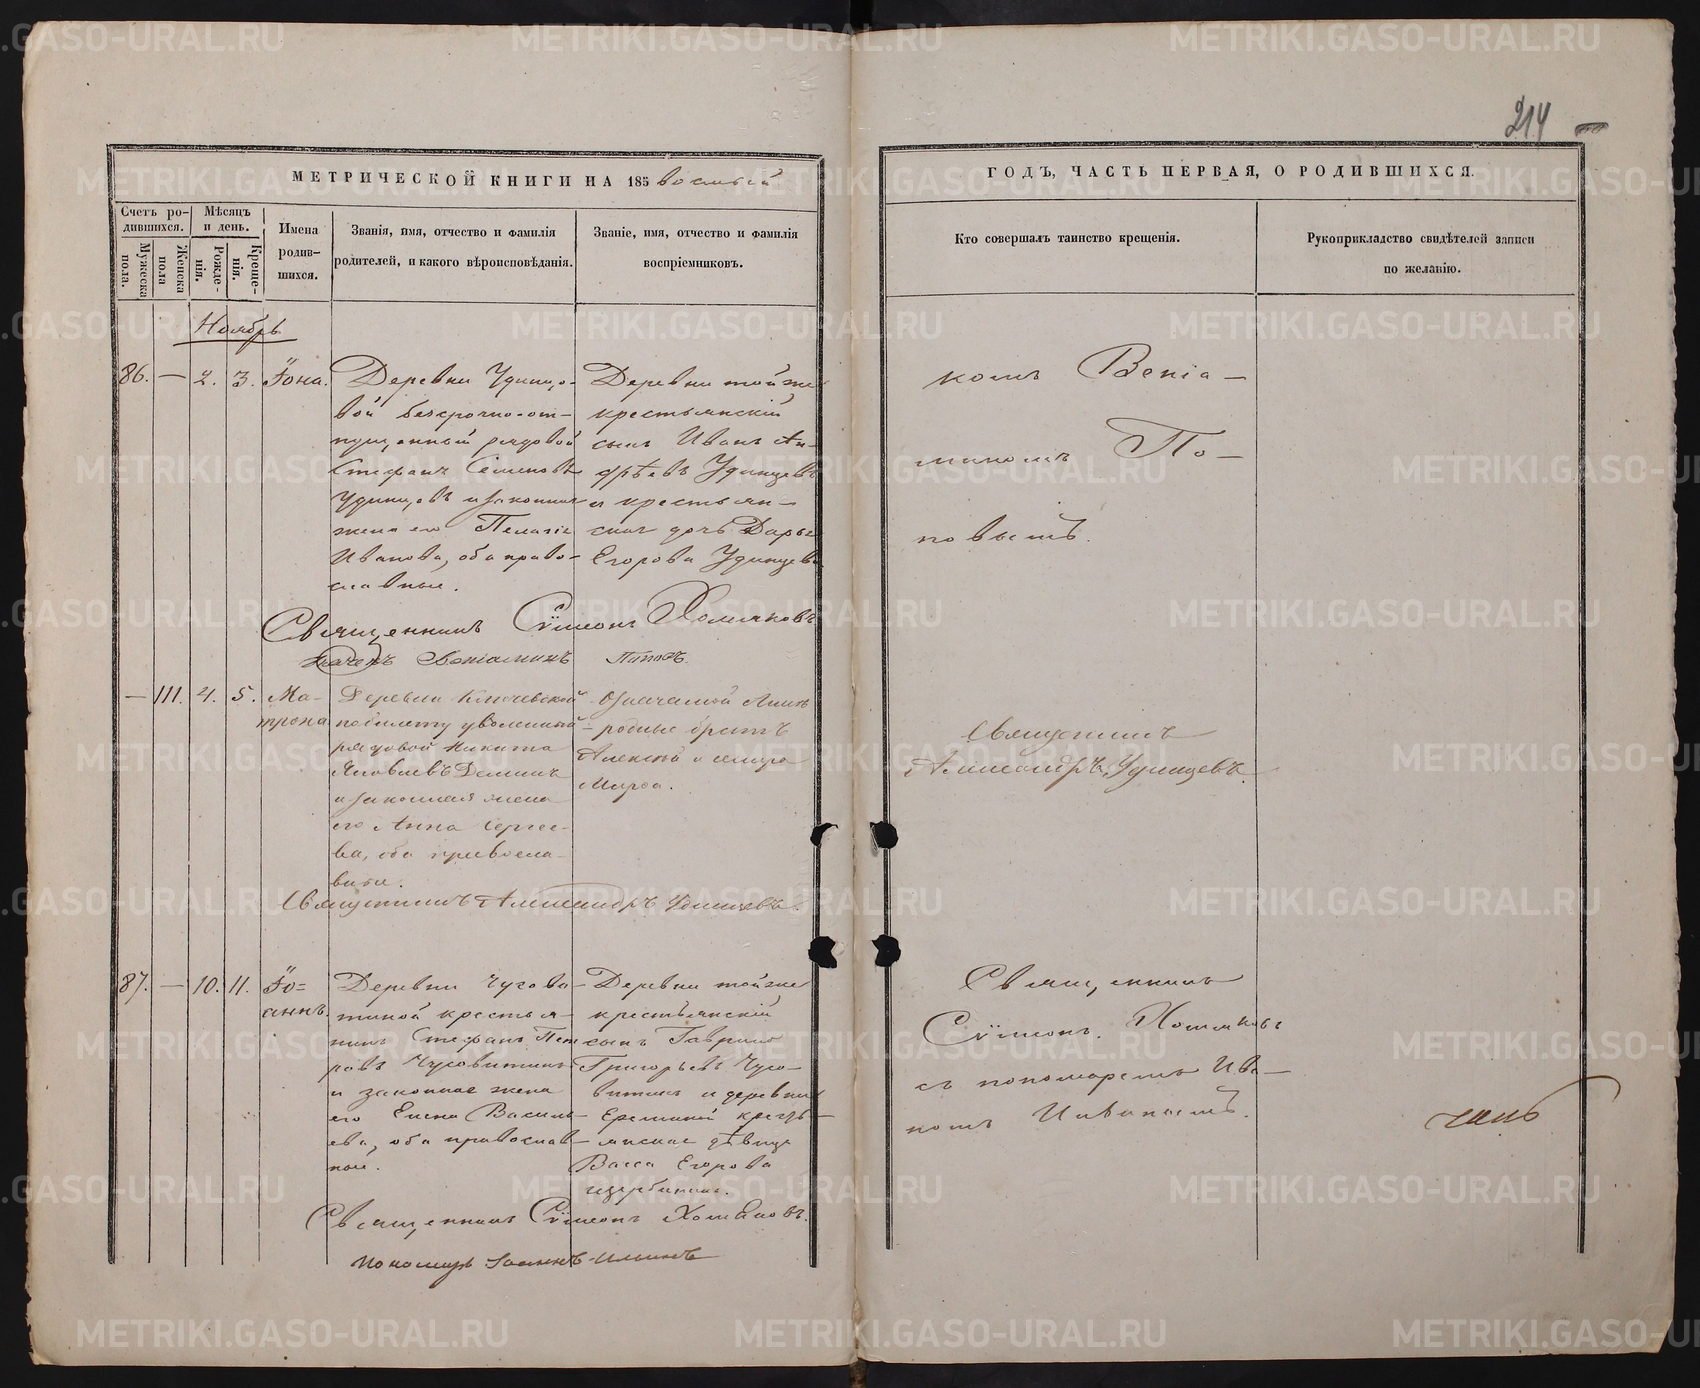 214
МЕТРИЧЕСКОЙ КНИГИ НА 185 восмый
ГОДЪ, ЧАСТЬ ПЕРВАЯ, О РОДИВШИХСЯ.
Счетъ ро-
дившихся.
Мужеска
пола.
Женска
пола
Мѣсяцъ
и день.
Рожде-
нія.
Креще-
нія.
Имена
родив-
шихся.
Званія, имя, отчество и фамилія
родителей, и какого вѣроисповѣданія.
Званіе, имя, отчество и фамилія
воспріемниковъ.
Кто совершалъ таинство крещенія.
Рукоприкладство свидѣтелей записи
по желанію.
Ноябрь
86. — 2. 3. Іона.
Деревни Удинцо-
вой безсрочно-от-
пущенный рядовой
Стефанъ Семеновъ
Удинцовъ и законная
жена его Пелагія
Иванова, оба право-
славные.
Деревни тойже
крестьянскій
сынъ Иванъ Ан-
дрѣевъ Удинцевъ
и крестьян-
ская дочь Дарья
Егорова Удинцева
комъ Веніа-
миномъ По-
повымъ.
Священникъ Сѵмеонъ Хомяковъ
Веніаминъ Поповъ
— 111. 4. 5. Ма-
трона
Деревни Ключевской
по билету уволенный
рядовой Никита
Яковлевъ Деминъ
и законная жена
его Анна Сергее-
ва, оба правосла-
вные.
Означенной Анны
родные братъ
Алексѣй и сестра
Марѳа.
Священникъ
Александръ Удинцевъ.
Священникъ Александръ Удинцевъ.
87. — 10. 11. Іо=
аннъ.
Деревни Чусово-
тиной крестья-
нинъ Стефанъ Пет
ровъ Чусовитинъ
и законная жена
его Елена Василь-
ева, оба православ-
ные.
Деревни тойже
крестьянскій
сынъ Гаврило
Григорьевъ Чусо-
витинъ и деревни
крестьянская дѣвица
Васса Егорова
Щербинина.
Священникъ
Сѵмеонъ Хомяковъ
съ пономаремъ Ива-
номъ
Священникъ Сѵмеонъ Хомяковъ.
Пономарь Іоаннъ
METRIKI.GASO-URAL.RU